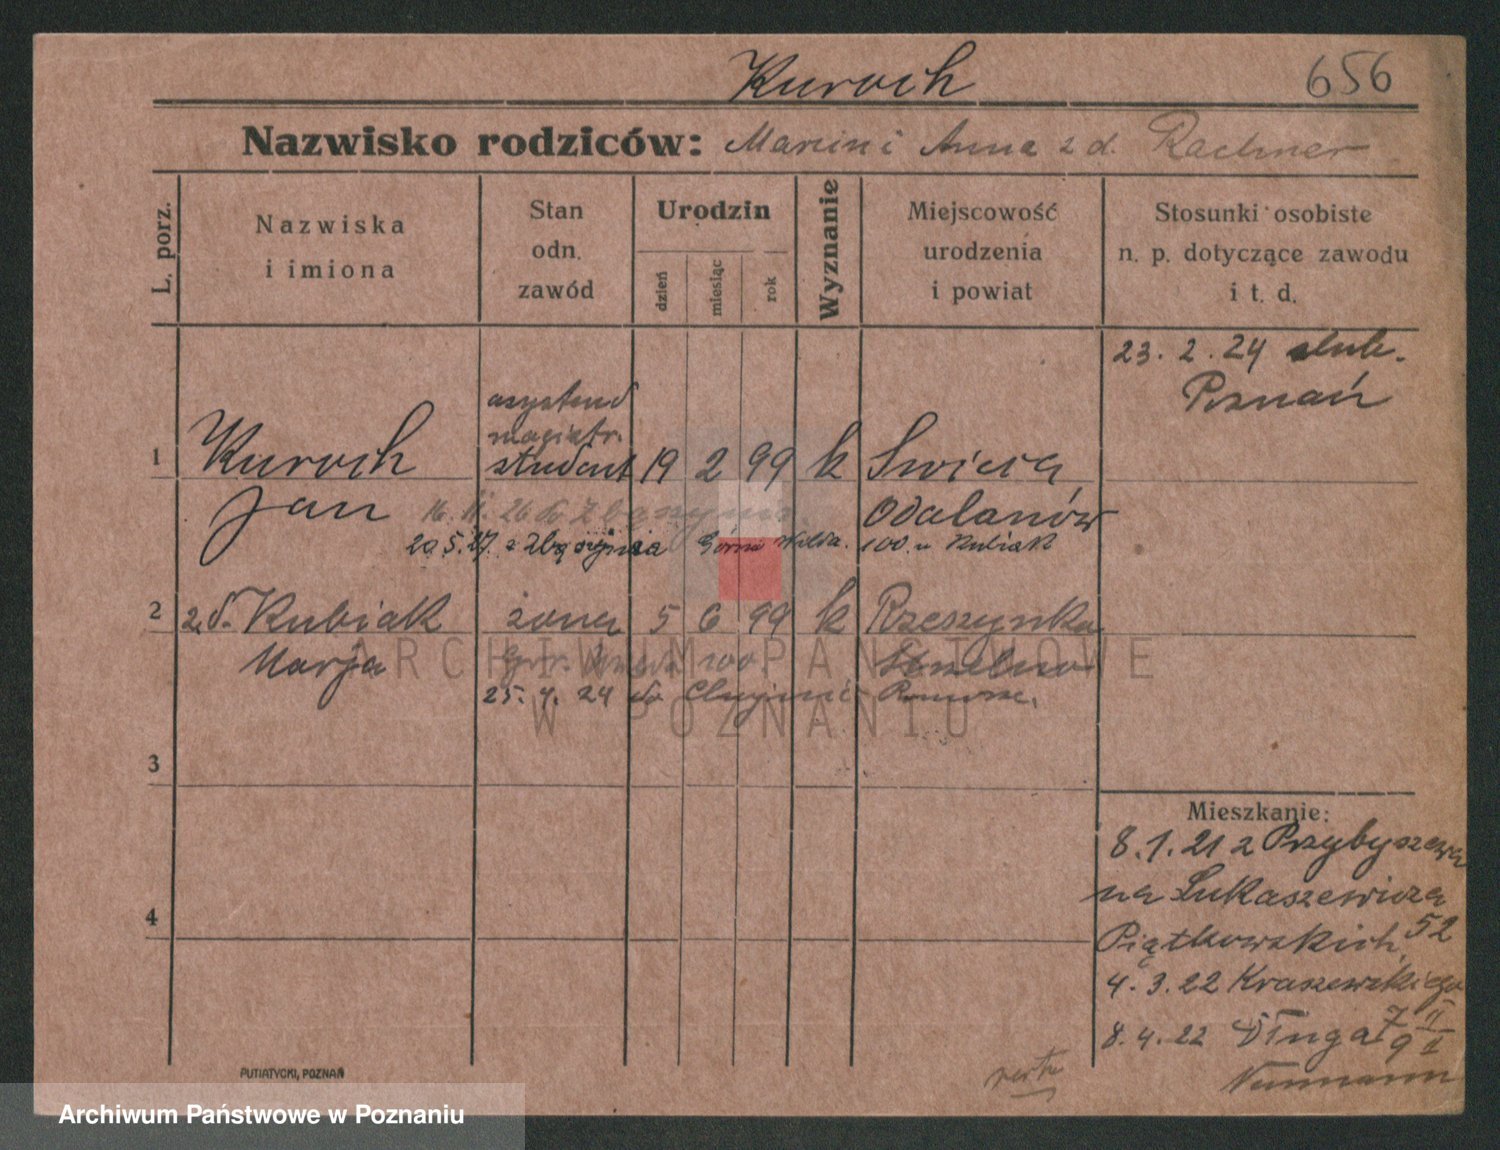 Kuroch 656
Nazwisko rodziców: Marcin i Anna z d. Rachner
L. porz.
Nazwiska
i imiona
Stan
odn.
zawód
Urodzin
dzień
miesiąc
rok
Wyznanie
Miejscowość
urodzenia
i powiat
Stosunki osobiste
n. p. dotyczące zawodu
i t. d.
23. 2. 24 slub.
Poznań
asystent
magistr.
1 Kuroch student 19 2 99 k Swieca
Jan Odolanów
16. II. 26 do Zbąszynia
20. 5. 27. z Zbąszynia Górna Wilda. 100. u Kubiak
2 z d. Kubiak żona 5 6 99 k Rzeszynka
Marja Gór. Wilda 100 Strzelno
25. 4. 24 do
3
4
Mieszkanie:
8. 1. 21 z Przybyszewa
na Łukaszewicza
Piątkowskich 52
4. 3. 22 Kraszewskiego
8. 4. 22 Długa 9 II
Neumann
PUTIATYCKI, POZNAŃ
ARCHIWUM PAŃSTWOWE
W POZNANIU
Archiwum Państwowe w Poznaniu